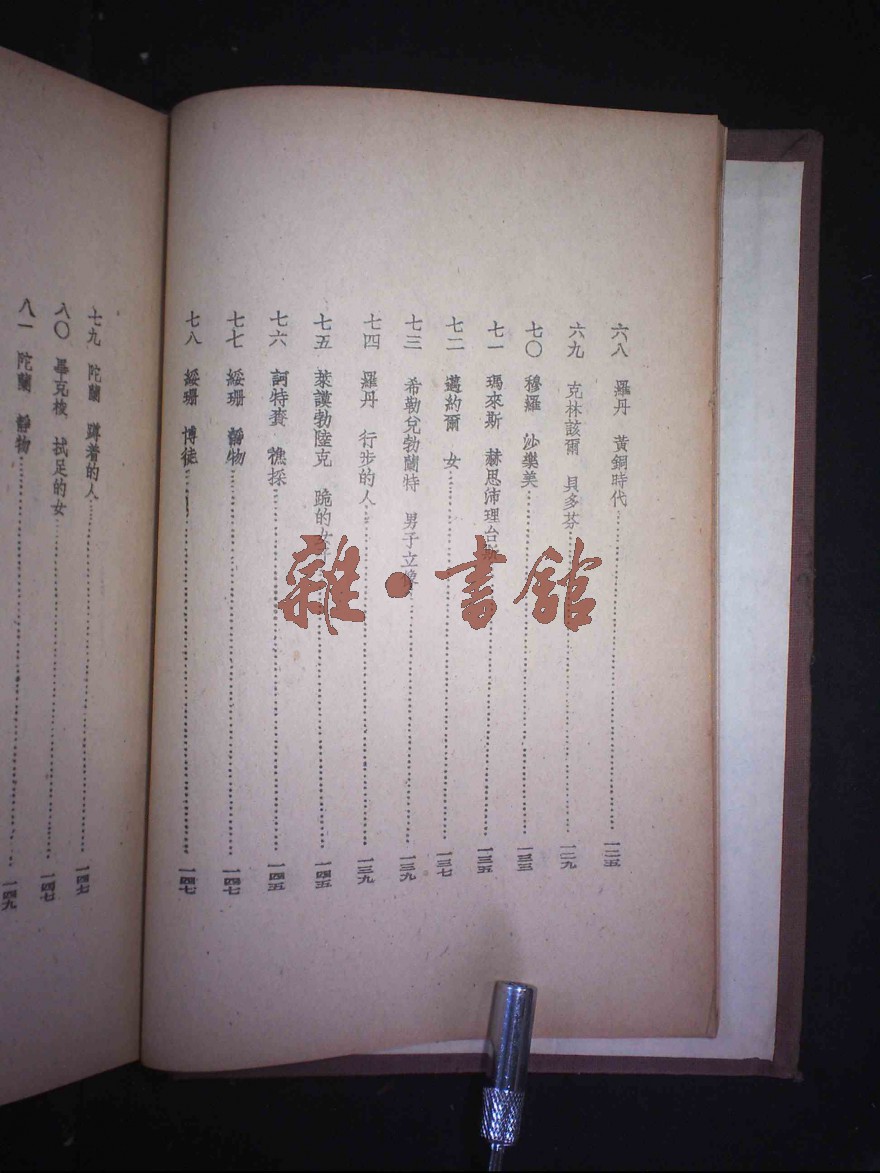 六八 羅丹 黃銅時代 一二五
六九 克林該爾 貝多芬 一二九
七〇 穆羅 沙樂美 一三三
七一 瑪來斯 赫思沛理台斯 一三五
七二 邁約爾 女 一三七
七三 希勒兌勃蘭特 男子立像 一三九
七四 羅丹 行步的人 一三九
七五 萊謨勃陸克 跪的女子 一四五
七六 訶特賚 樵採 一四五
七七 綏珊 靜物 一四七
七八 綏珊 博徒 一四七
七九 陀蘭 蹲着的人 一四七
八〇 畢克梭 拭足的女 一四七
八一 陀蘭 靜物 一四九
雜·書館